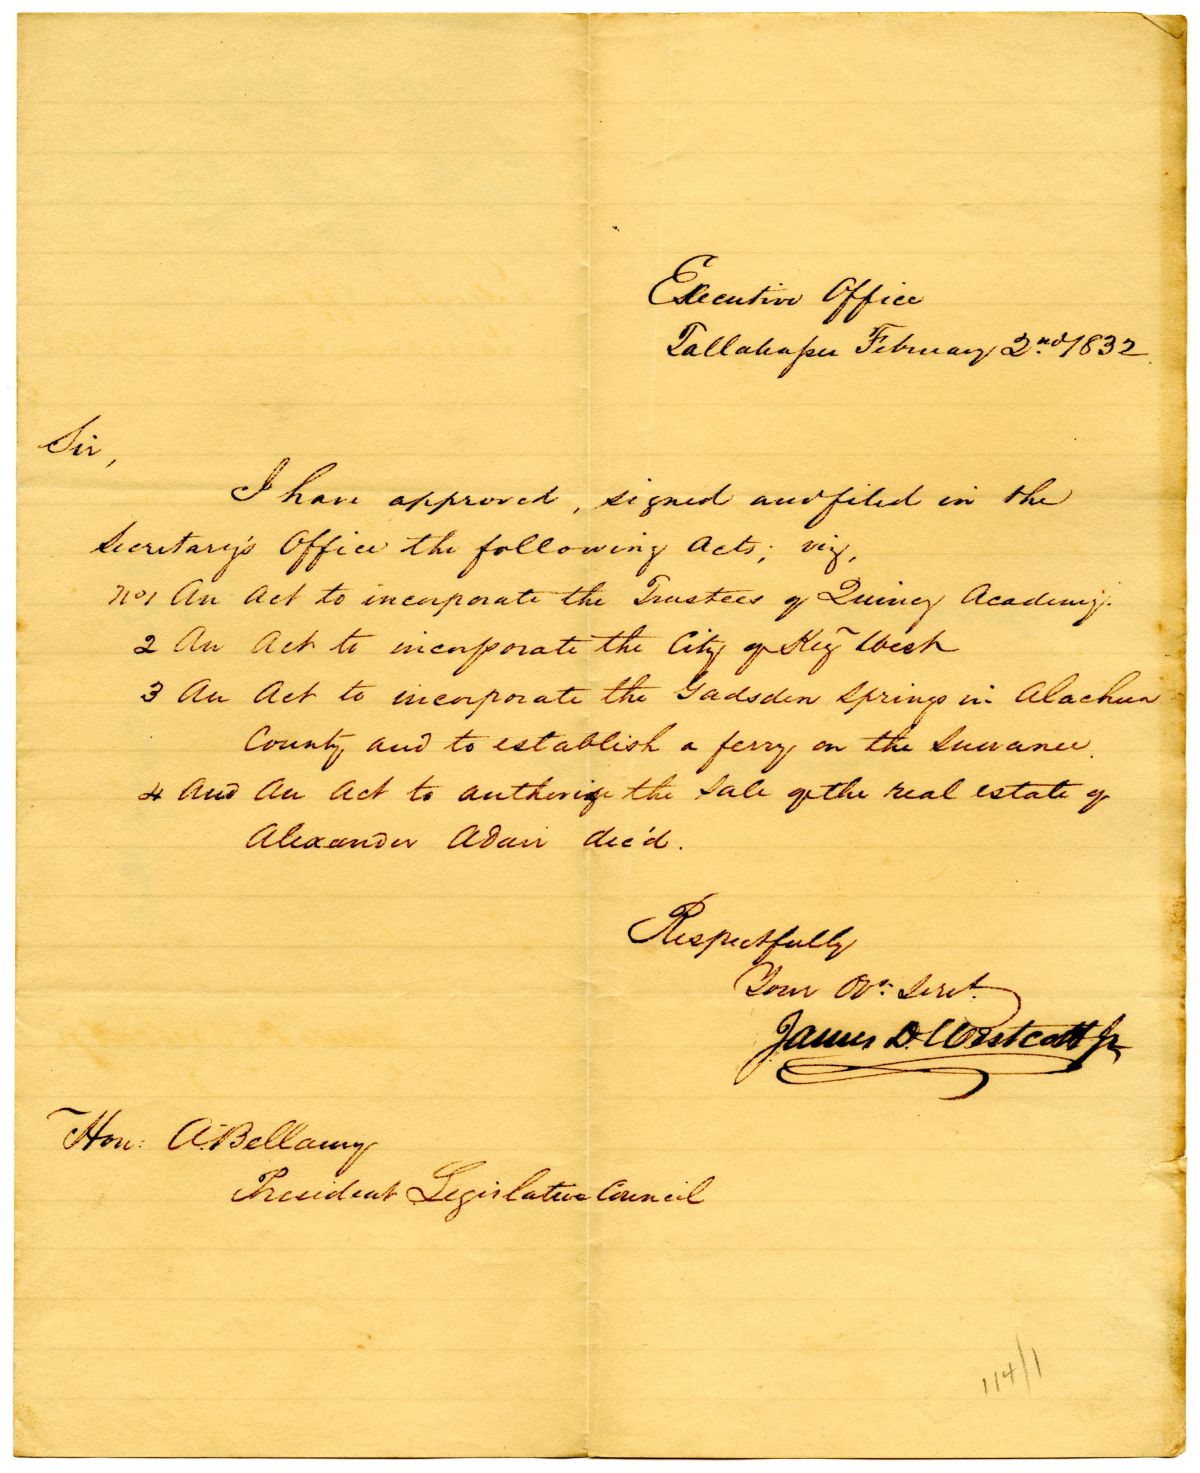 Executive Office
Tallahassee February 2nd 1832
Sir,
I have approved, signed and filed in the
Secretary's Office the following Acts; viz,
No 1 An Act to incorporate the Trustees of Quincy Academy.
2 An Act to incorporate the City of Key West
3 An Act to incorporate the Gadsden Springs in Alachua
County and to establish a ferry on the Suwanee.
4 And An Act to authorize the sale of the real estate of
Alexander Adair dec'd.
Respectfully
Your Obt. Servt.
James D. Westcott Jr
Hon: A. Bellamy
President Legislative Council
114/1